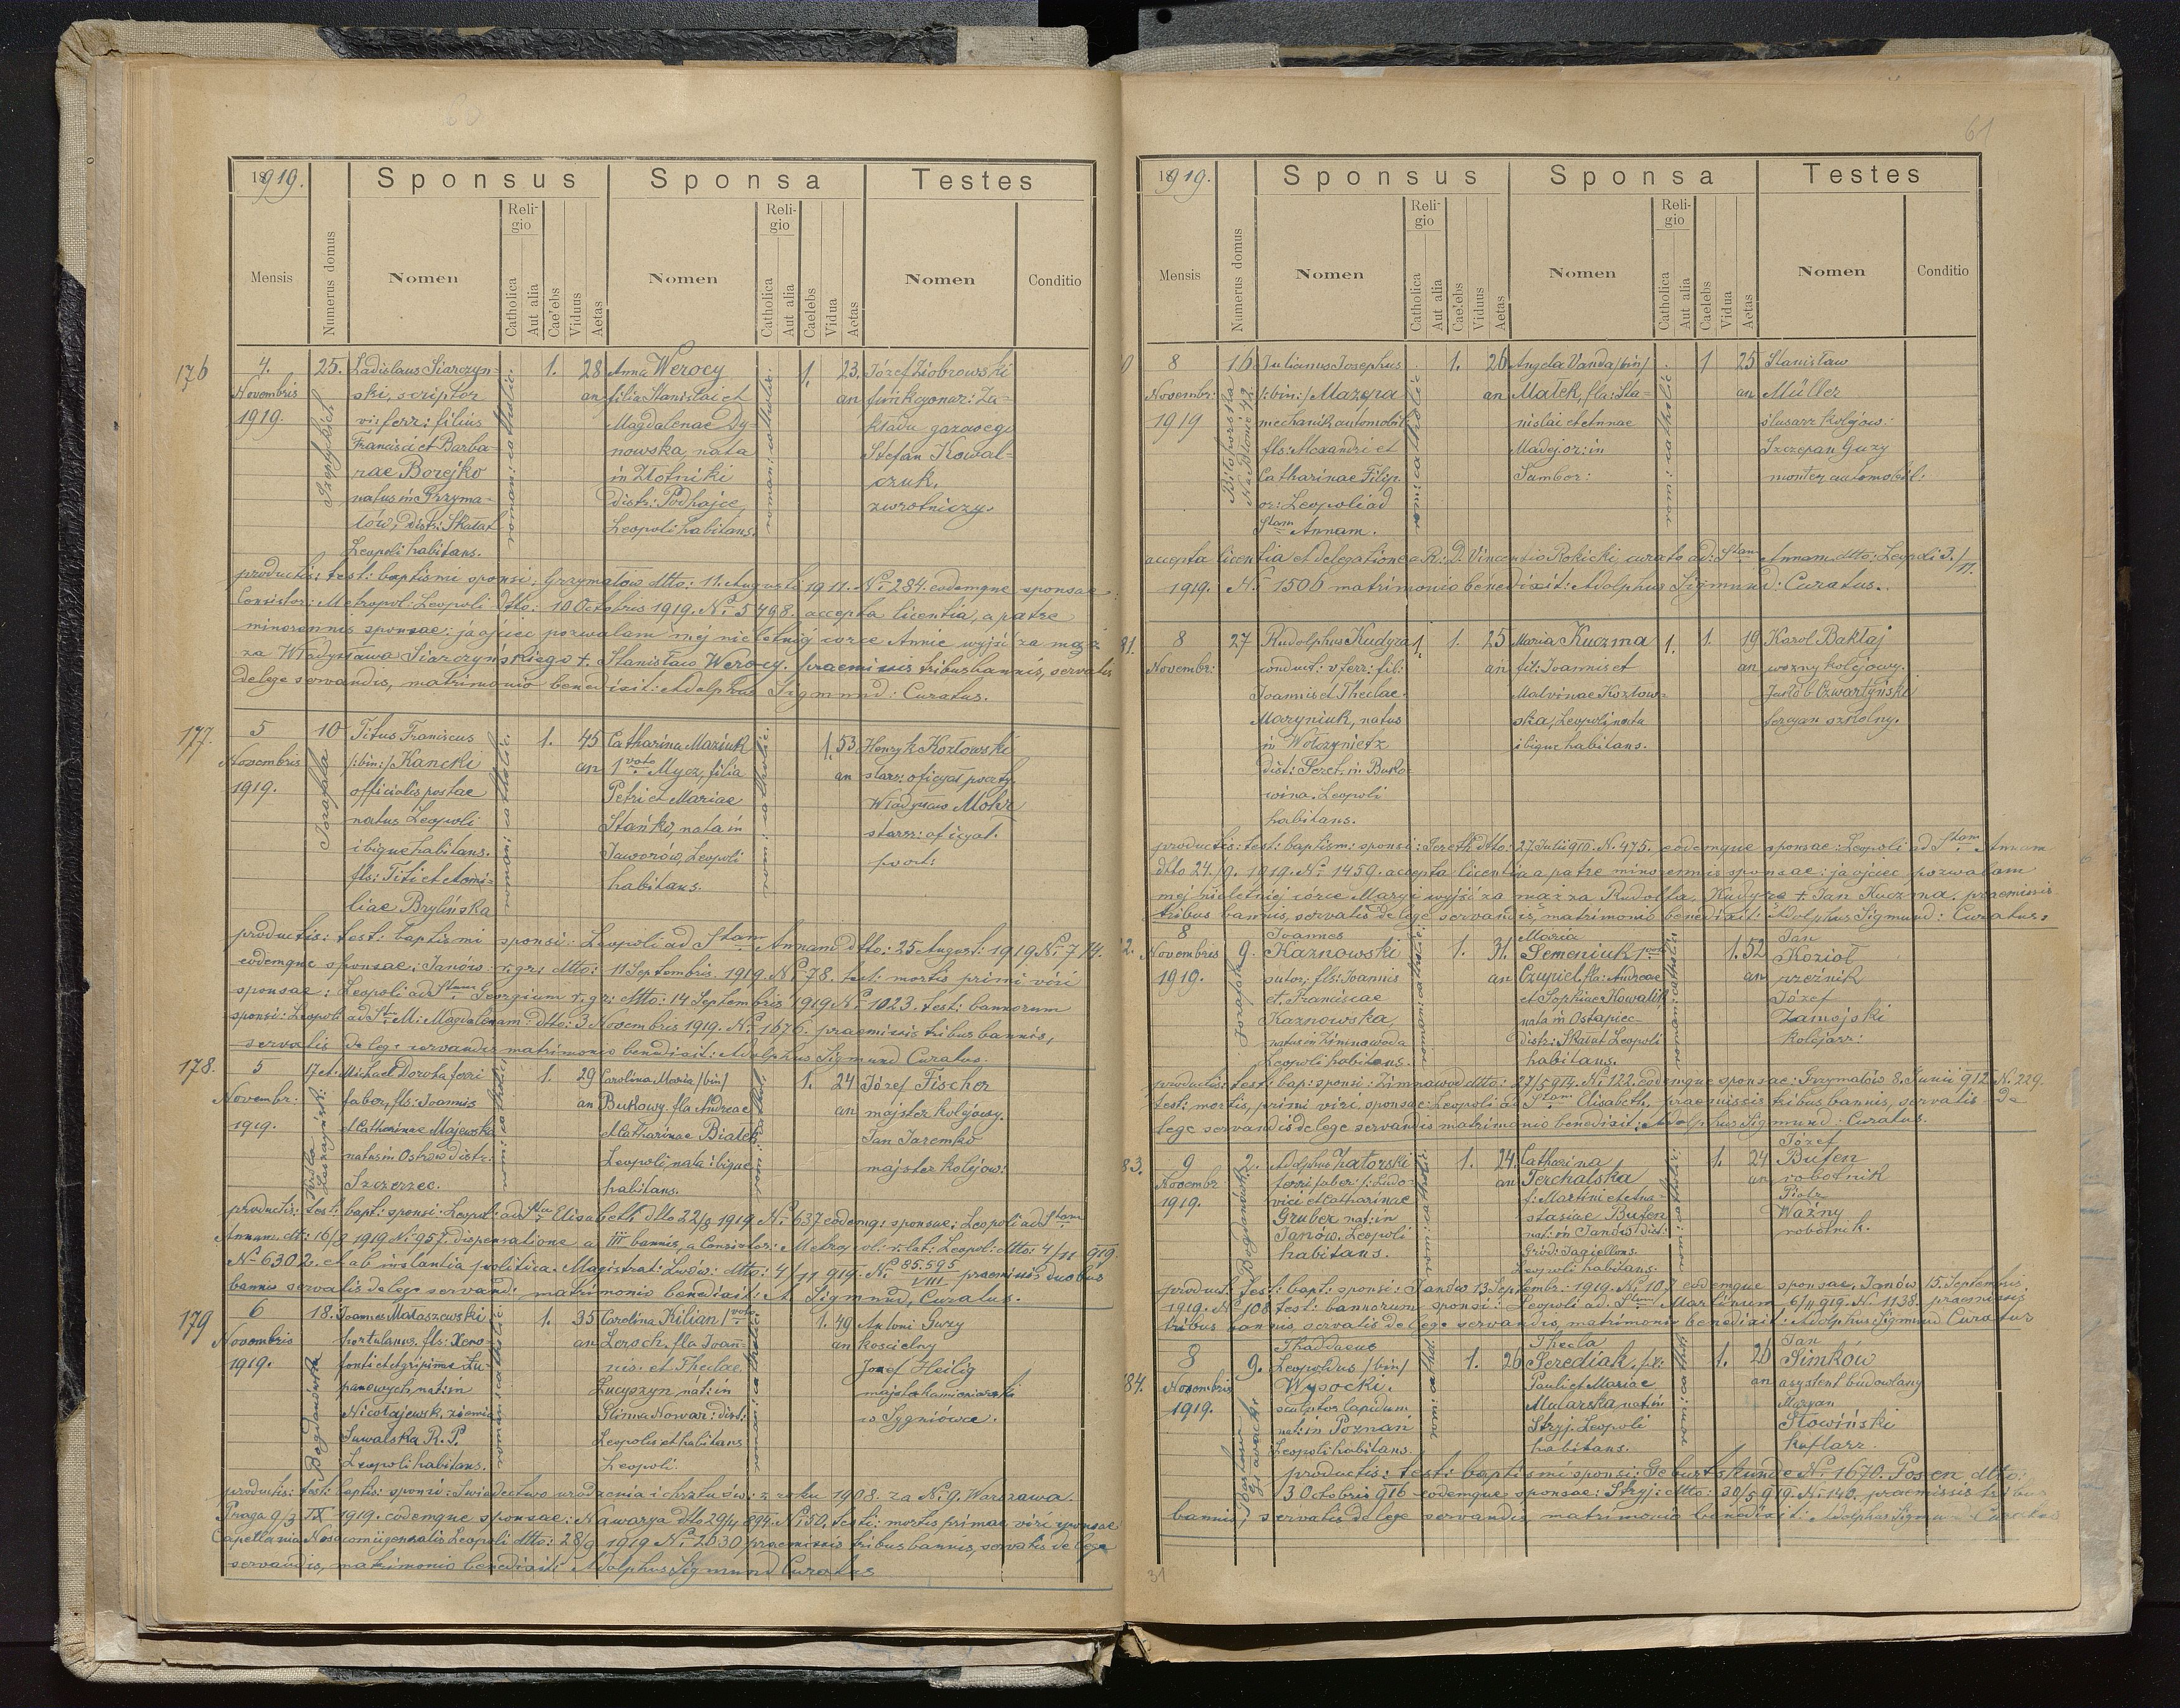 61
1919.
Sponsus
Sponsa
Testes
Mensis
Numerus domus
Nomen
Religio
Catholica
Aut alia
Cae'ebs
Viduus
Aetas
Nomen
Religio
Catholica
Aut alia
Caelebs
Vidua
Aetas
Nomen
Conditio
176
4. Novembris 1919.
25. Szeptyckich
Ladislaus Siarczyn-
ski, scriptor
vi: ferr: filius
Francisci et Barba-
rae Borejko
natus in Grzyma-
łów, distr: Skałat
Leopoli habitans.
roman: catholic.
1. 28 an
Anna Werocy
filia Stanislai et
Magdalenae Dy-
nowska nata
in Złotniki
distr: Podhajce,
Leopoli habitans.
roman: catholic.
1. 23. an
Józef Ziobrowski
funkcyonar: Za-
kładu gazoweg
Stefan Kowal-
czuk,
zwrotniczy.
productis: test: baptismi sponsi: Grzymałów dtto: 11. Augusti 1911. No 284. eodemque sponsae:
Consistor: Metropol: Leopoli dtto: 10 Octobris 1919. No 5498. accepta licentia, a patre
minorennis sponsae: ja ojciec pozwalam mej nieletniej córce Annie wyjść za mąż
za Władysława Siarczyńskiego +. Stanisław Werocy. praemissis tribus bannis, servatis
de lege servandis, matrimonio benedixit: Adolphus Sigmund: Curatus.
177.
5 Novembris 1919.
10 Jozafata
Titus Franiscus
/:bin:/ Kancki
officialis postae
natus Leopoli
ibique habitans.
fls: Titi et Aemi-
liae Brylińska
roman: catholic.
1. 45 an
Catharina Maziuk
1 voto Mycz, filia
Petri et Mariae
Stańko, nata in
Jaworów, Leopoli
habitans.
rom: catholic.
1. 53 an
Henryk Kozłowski
starsz: oficyał poczty.
Władysław Mohr
starsz: oficyał.
poczt:
productis: test: baptismi sponsi: Leopoli ad Stam Annam dtto: 25 August: 1919 No 714.
eodemque sponsae: Janów r. gr: dtto: 11 Septembris 1919 No 78. test: mortis primi viri
sponsae: Leopoli ad Stum Georgium r. gr: dtto: 14 Septembris 1919 No 1023. test: bannorum
sponsi: Leopoli ad St. M: Magdalenam dtto: 3 Novembris 1919. No 1676. praemissis tribus bannis,
servatis de lege servandis matrimonio benedixit: Adolphus Sigmund Curatus.
178.
5 Novembr: 1919.
Michael Dorota ferri
faber, fls: Joannis
et Catharinae Majewska
natus in Ostrów distr:
Szczerzec.
rom: catholic
1. 29 an
Carolina Maria /bin/
Bukowy. fla Andreae
et Catharinae Białek
Leopoli nata ibique
habitans.
rom: cathol.
1. 24 an
Józef Fischer
majster kolejowy.
Jan Jaremko
majster kolejow:
productis: test: bapt: sponsi: Leopoli ad Stam Elisabeth dtto 22/8 1919 No 637 eodemq: sponsae: Leopoli ad Stam
Annam. dtt: 16/9 1919 No 957. dispensatione a III bannis, a Consistor: Metropol: r. lat: Leopol: dtto: 4/11 919.
No 6302. et ab instantia politica. Magistrat: Lwów: dtto: 4/11 919. No 85.595/VIII praemissis duobus
bannis servatis de lege servand: matrimonio benedixit: A Sigmund, Curatus.
179
6 Novembris 1919.
18. Bogdanówka
Joannes Mataszewski
hortulanus. fls: Xeno-
fonti et Agripinae Łu-
panowych, nat: in
Nicołajewsk, ziemia
Suwalska R. P.
Leopoli habitans.
roman: catholic
1. 35 an
Carolina Kilian 1 voto
Lorsch, fla Joan-
nis et Theclae
Łucyszyn nat: in
Glinna Nowar: distr:
Leopolis et habitans
Leopoli.
roman: catholic
1. 49 an
Antoni Tury
koscielny
Jozef Heilig
majst: kamieniarski
w Sygniówce.
productis: test: baptis: sponsi: Swiedectwo urodzenia i chrztu sw: z roku 1908. za No 9. Warszawa.
Praga 9/3 IX 1919. eodemque sponsae: Nawarya dtto 29/4 894. No 50. testi: mortis primae viri sponsae
Capellania Nosocomii generalis Leopoli dtto: 28/9 1919 No 2630 praemissis tribus bannis, servatis de lege
servandis, matrimonio benedixit Adolphus Sigmund Curatus
1919.
Sponsus
Sponsa
Testes
Mensis
Numerus domus
Nomen
Religio
Catholica
Aut alia
Cae'ebs
Viduus
Aetas
Nomen
Religio
Catholica
Aut alia
Caelebs
Vidua
Aetas
Nomen
Conditio
0
8 Novembr: 1919
16 Na Błonie 42
Julianus Josephus
/:bin:/ Mazepa
mechanik automobil:
fls: Alexandri et
Catharinae Filip.
or: Leopoli ad
Stam Annam.
rom: catholic
1. 26 an
Angela Vanda /bin/
Małek, fla: Sta-
nislai et Annae
Madej or: in
Sambor:
rom: catholic.
1 25 an
Stanisław
Müller
slusarz kolejow:
Szczepan Guzy
monter automobil:
accepta licentia et delegatione a R: D. Vincentio Rokicki curato ad: Stam Annam dtto: Leopoli 3./11.
1919. No 1506 matrimonio benedixit: Adolphus Sigmund: Curatus.
81.
8 Novembr:
27
Rudolphus Kudyza
conduct: v ferr: fil:
Joannis et Theclae
Mazyniuk, natus
in Wołczynietz
dist: Seret, in Buko-
wina. Leopoli
habitans.
1. 1. 25 an
Maria Kuczma
fil: Joannis et
Malvinae Kozłow-
ska, Leopoli nata
ibique habitans.
1. 1. 19 an
Karol Bakłaj
wozny kolejowy.
Jakób Czwartyński
tercyan szkolny.
productis: test: baptism: sponsi: Sereth dtto: 27 Julii 910. No 475. eodemque sponsae: Leopoli ad Stam Annam
dtto 24./9. 1919. No 1459. accepta licentia a patre minorennis sponsae: ja ojciec pozwalam
mej nieletniej córce Maryi wyjść za mąż za Rudolfa Kudyzę + Jan Kuczma. praemissis
tribus bannis, servatis de lege servandis, matrimonio benedixit: Adolphus Sigmund: Curatus:
2.
8 Novembris 1919.
9. Jozafata
Joannes
Kaznowski
sutor, fls: Joannis
et Franciscae
Kaznowska
natus in Zimnawoda
Leopoli habitans.
roman: catholic:
1. 31. an
Maria
Semeniuk 1 voto
Czupiel, fla: Andreae
et Sophiae Kowalik
nata in Ostapiec
distr: Skałat Leopoli
habitans.
roman: catholic
1. 52 an
Jan
Kozioł
rzeźnik
Józef
Zamojski
kolejarz:
productis: test: bap: sponsi: Zimnawod dtto: 27/5 914. No 122. eodemque sponsae: Grzymałów 8. Junii 912 N. 229.
test: mortis, primi viri sponsae: Leopoli ad Stam Elisabeth, praemissis tribus bannis, servatis de
lege servandis de lege servandis matrimonio benedixit: Adolphus Sigmund: Curatus.
83.
9 Novembr 1919.
2. Bogdanówka
Adolphus Zatorski
ferri faber f: Ludo-
vici et Catharinae
Gruber nat: in
Janów. Leopoli
habitans.
rom: catholic:
1. 24. an
Catharina
Terchalska
f: Martini et Ana-
stasiae Bufen
nat: in Janów dist:
Gród: Jagiellons.
Leopoli habitans.
rom: catholic:
1. 24 an
Józef
Bufen
robotnik
Piotr
Ważny
robotnik.
product: test: bapt: sponsi: Janów 13 Septembr: 1919. No 107 eodemque sponsae. Janów 15. Septembris
1919. No 108 test: bannorum sponsi: Leopoli ad. Stum Martinum 6/11 919. N. 1138. praemissis
tribus bannis servatis de lege servandis, matrimonio benedixit: Adolphus Sigmund Curatus
84.
8 Novembris 1919.
9.
Thaddaeus
Leopoldus /bin/
Wysocki.
sculptor lapidum
nat: in Poznań
Leopoli habitans.
rom: cathol.
1. 26
Thecla
Serediak, f:
Pauli et Mariae
Mularska, nat: in
Stryj. Leopoli
habitans.
rom: cathol:
1. 26 an
Jan
Simków
asystent budowlany
Maryan
Słowiński
kuflarz.
productis: test: baptismi sponsi: Geburtskunde No 1670. Posen dtto:
3 Octobris 916 eodemque sponsae: Stryj: dtto: 30/5 919. No 146. praemissis tribus
bannis, servatis de lege servandis matrimonio benedixit: Adolphus Sigmund Curatus
31